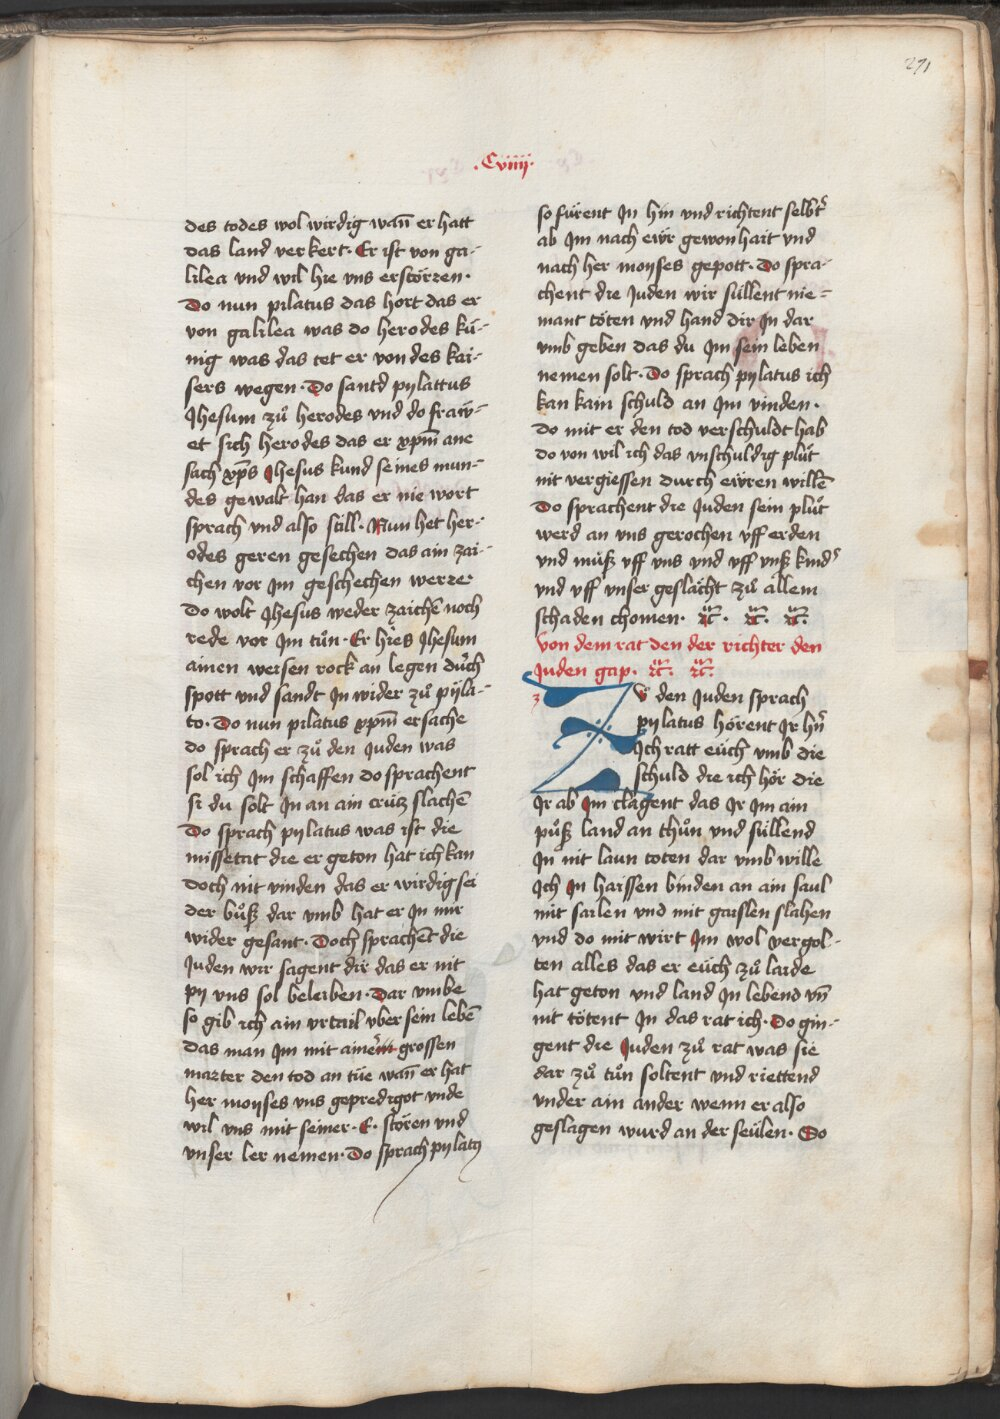 271
.Cviiij.
des todes wol wirdig wañ er hatt
das land verkert. Er ist von ga-
lilea vnd wil hie vns erstörren.
Do nun pilatus das hort das er
von galilea was do herodes kü-
nig was das tet er von des kai-
sers wegen. Do santd pylattus
Jhesum zů herodes vnd do fraẅ-
et sich herodes das er xp̄m ane
sach xp̄s Jhesus kund seines mun-
des gewalt han das er nie wort
sprach vnd also still. Nun het her-
odes geren gesechen das ain zai-
chen vor Jm geschechen werre
Do wolt Jhesus weder zaichē noch
rede vor Jm tůn. Er hies Jhesum
ainen weisen rock an legen durch
spott vnd sandt Jn wider zů pÿla-
to. Do nun pilatus xp̄m ersache
do sprach er zů den Juden was
sol ich Jm schaffen do sprachent
si du solt Jn an ain crütz slachē
Do sprach pylatus was ist die
missetat die er geton hat ich kan
doch nit vinden das er wirdig sei
der bůß dar vmb hat er Jn mir
wider gesant. Doch sprachēt die
Juden wir sagent dir das er nit
py vns sol beleiben. Dar vmbe
so gib ich ain vrtail vber sein lebē
das man Jm mit ainem grossen
marter den tod an tüe wañ er hat
her moyses vns gepredigot vnde
wil vns mit seiner. E. stören vnd
vnser ler nemen. Do sprach pylatꝰ
so fürent Jn hin vnd richtent selbt
ab Jm nach ewr gewonhait vnd
nach her moyses gepott. Do spra-
chent die Juden wir süllent nie-
mant töten vnd hand dir Jn dar
vmb geben das du Jm sein leben
nemen solt. Do sprach pylatus ich
kan kain schuld an Jm vinden.
Do mit er den tod verschuldt hab
do von wil ich das vnschuldig plůt
nit vergiessen durch eẅren willē
Do sprachent die Juden sein plůt
werd an vns gerochen vff erden
vnd můß vff vns vnd vff vnß kind
vnd vff vnser geslächt zů allem
schaden chomen. ꝛc. ꝛc. ꝛc.
Von dem rat den der richter den
Juden gap. ꝛc. ꝛc.
Zů den Juden sprach
pylatus hörent Jr hñ
Jch ratt eüch vmb die
schuld die ich hör die
Jr ab Jm clagent das Jr Jm ain
půß land an thůn vnd süllend
Jn nit laun toten dar vmb wille
Jch Jn haissen binden an ain saul
mit sailen vnd mit gaislen slahen
vnd do mit wirt Jm wol vergol-
ten alles das er eüch zů laide
hat geton vnd land Jn lebend vñ
nit tötent Jn das rat ich. Do gin-
gent die Juden zů rat was sie
dar zů tůn soltent vnd riettend
vnder ain ander wenn er also
geslagen wurd an der seülen. So